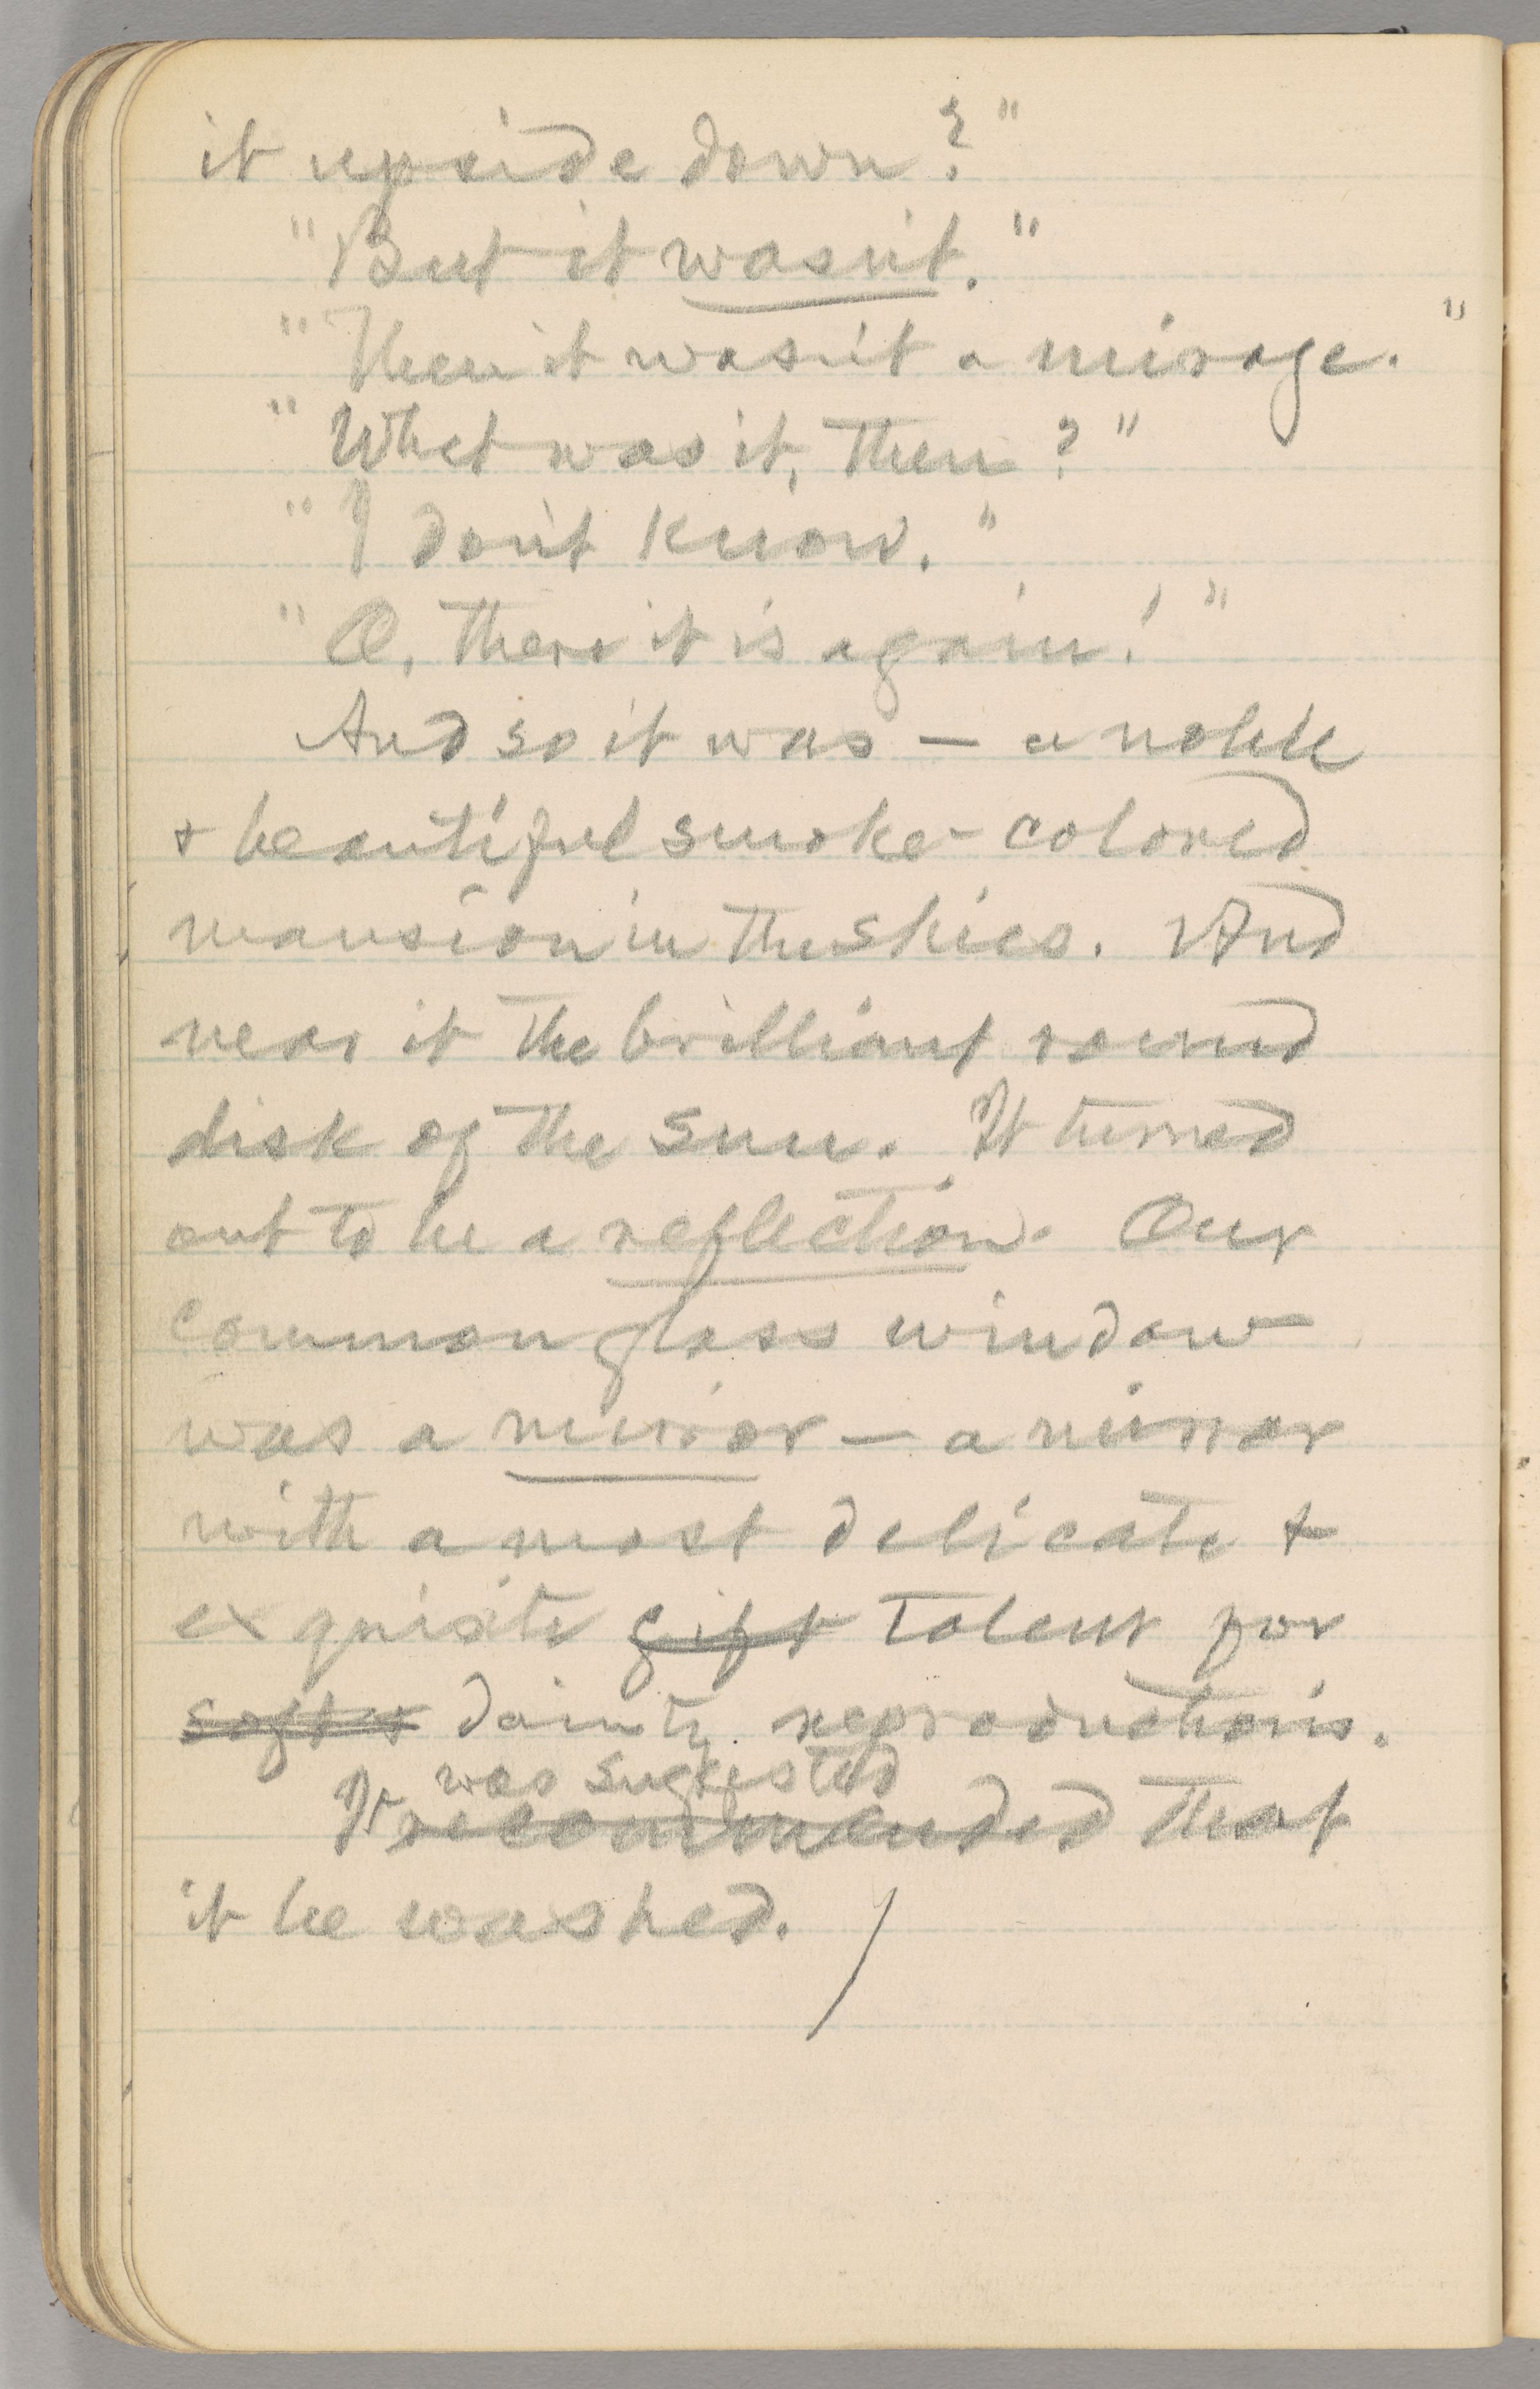 it upside down?"
"But it wasn't."
"Then it wasn't a mirage."
"What was it, then?"
"I don't know."
"O, there it is again!"
And so it was — a noble
& beautiful smoke-colored
mansion in the skies. And
near it the brilliant round
disk of the sun. It turned
out to be a reflection. Our
common glass window
was a mirror — a mirror
with a most delicate &
exquisite gift talent for
soft & dainty reproductions.
was suggested
It recommended that
it be washed.